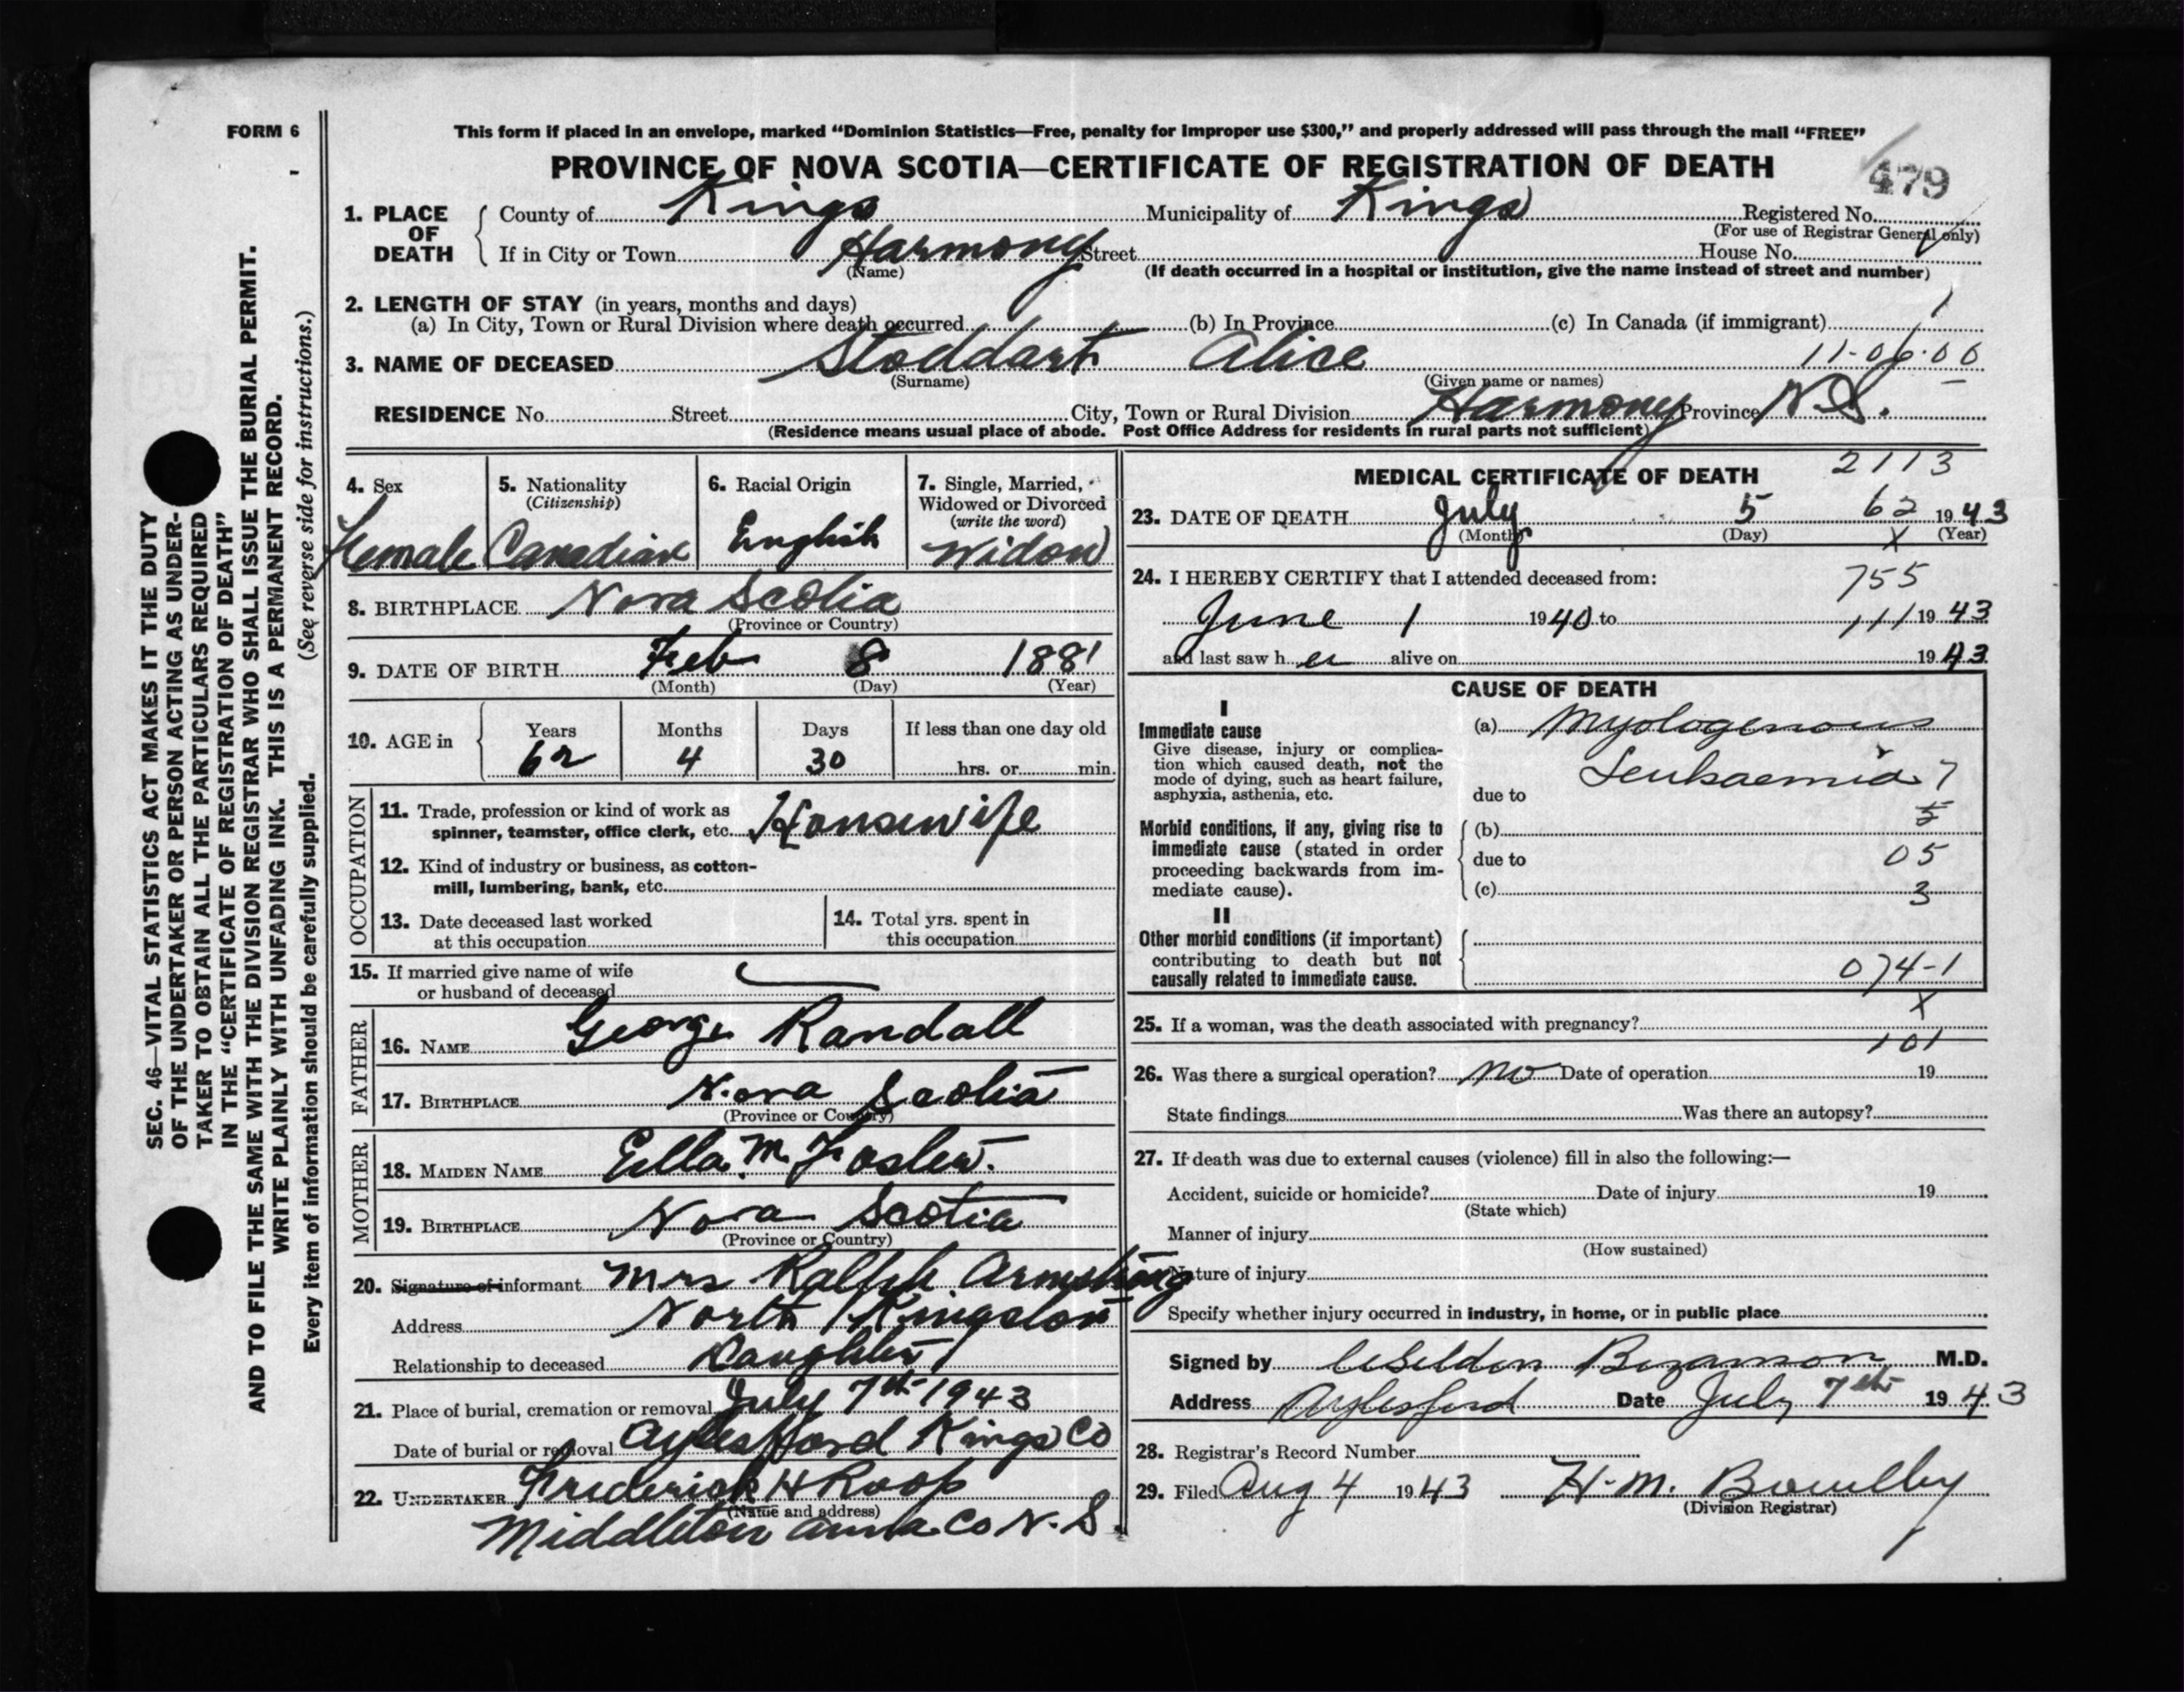 FORM 6
This form if placed in an envelope, marked “Dominion Statistics—Free, penalty for improper use $300,” and properly addressed will pass through the mail “FREE”
PROVINCE OF NOVA SCOTIA—CERTIFICATE OF REGISTRATION OF DEATH
479
1. PLACE OF DEATH
County of Kings Municipality of Kings Registered No.
(For use of Registrar General only)
If in City or Town Harmony Street House No.
(Name) (If death occurred in a hospital or institution, give the name instead of street and number)
2. LENGTH OF STAY (in years, months and days)
(a) In City, Town or Rural Division where death occurred (b) In Province (c) In Canada (if immigrant)
3. NAME OF DECEASED Stoddart Alice 11-06-00
(Surname) (Given name or names)
RESIDENCE No. Street City, Town or Rural Division Harmony Province N.S.
(Residence means usual place of abode. Post Office Address for residents in rural parts not sufficient)
4. Sex
Female
5. Nationality
(Citizenship)
Canadian
6. Racial Origin
English
7. Single, Married,
Widowed or Divorced
(write the word)
Widow
8. BIRTHPLACE Nova Scotia
(Province or Country)
9. DATE OF BIRTH Feb 8 1881
(Month) (Day) (Year)
10. AGE in
Years Months Days If less than one day old
62 4 30 hrs. or min.
OCCUPATION
11. Trade, profession or kind of work as
spinner, teamster, office clerk, etc. Housewife
12. Kind of industry or business, as cotton-
mill, lumbering, bank, etc.
13. Date deceased last worked
at this occupation
14. Total yrs. spent in
this occupation
15. If married give name of wife
or husband of deceased
FATHER
16. NAME George Randall
17. BIRTHPLACE Nova Scotia
(Province or Country)
MOTHER
18. MAIDEN NAME Ella M. Foster.
19. BIRTHPLACE Nova Scotia
(Province or Country)
20. Signature of informant Mrs Ralph Armstrong
Address North Kingston
Relationship to deceased Daughter
21. Place of burial, cremation or removal July 7th 1943
Date of burial or removal Aylesford Kings Co
22. UNDERTAKER Frederick H Roop
(Name and address)
Middleton Anna. Co N. S.
MEDICAL CERTIFICATE OF DEATH 2113
23. DATE OF DEATH July 5 62 1943
(Month) (Day) X (Year)
24. I HEREBY CERTIFY that I attended deceased from:
755
June 1 1940 to 111 1943
and last saw her alive on 1943
CAUSE OF DEATH
I
Immediate cause
Give disease, injury or complica-
tion which caused death, not the
mode of dying, such as heart failure,
asphyxia, asthenia, etc.
(a) Myologenous
Leukaemia 7
due to
Morbid conditions, if any, giving rise to
immediate cause (stated in order
proceeding backwards from im-
mediate cause).
(b) 5
due to 05
(c) 3
II
Other morbid conditions (if important)
contributing to death but not
causally related to immediate cause.
074-1
X
25. If a woman, was the death associated with pregnancy?
101
26. Was there a surgical operation? no Date of operation 19
State findings Was there an autopsy?
27. If death was due to external causes (violence) fill in also the following:—
Accident, suicide or homicide? Date of injury 19
(State which)
Manner of injury
(How sustained)
Nature of injury
Specify whether injury occurred in industry, in home, or in public place
Signed by M.D.
Address Aylesford Date July 7th 1943
28. Registrar's Record Number
29. Filed Aug 4 1943 H. M.
(Division Registrar)
SEC. 46—VITAL STATISTICS ACT MAKES IT THE DUTY
OF THE UNDERTAKER OR PERSON ACTING AS UNDER-
TAKER TO OBTAIN ALL THE PARTICULARS REQUIRED
IN THE “CERTIFICATE OF REGISTRATION OF DEATH”
AND TO FILE THE SAME WITH THE DIVISION REGISTRAR WHO SHALL ISSUE THE BURIAL PERMIT.
WRITE PLAINLY WITH UNFADING INK. THIS IS A PERMANENT RECORD.
Every item of information should be carefully supplied. (See reverse side for instructions.)